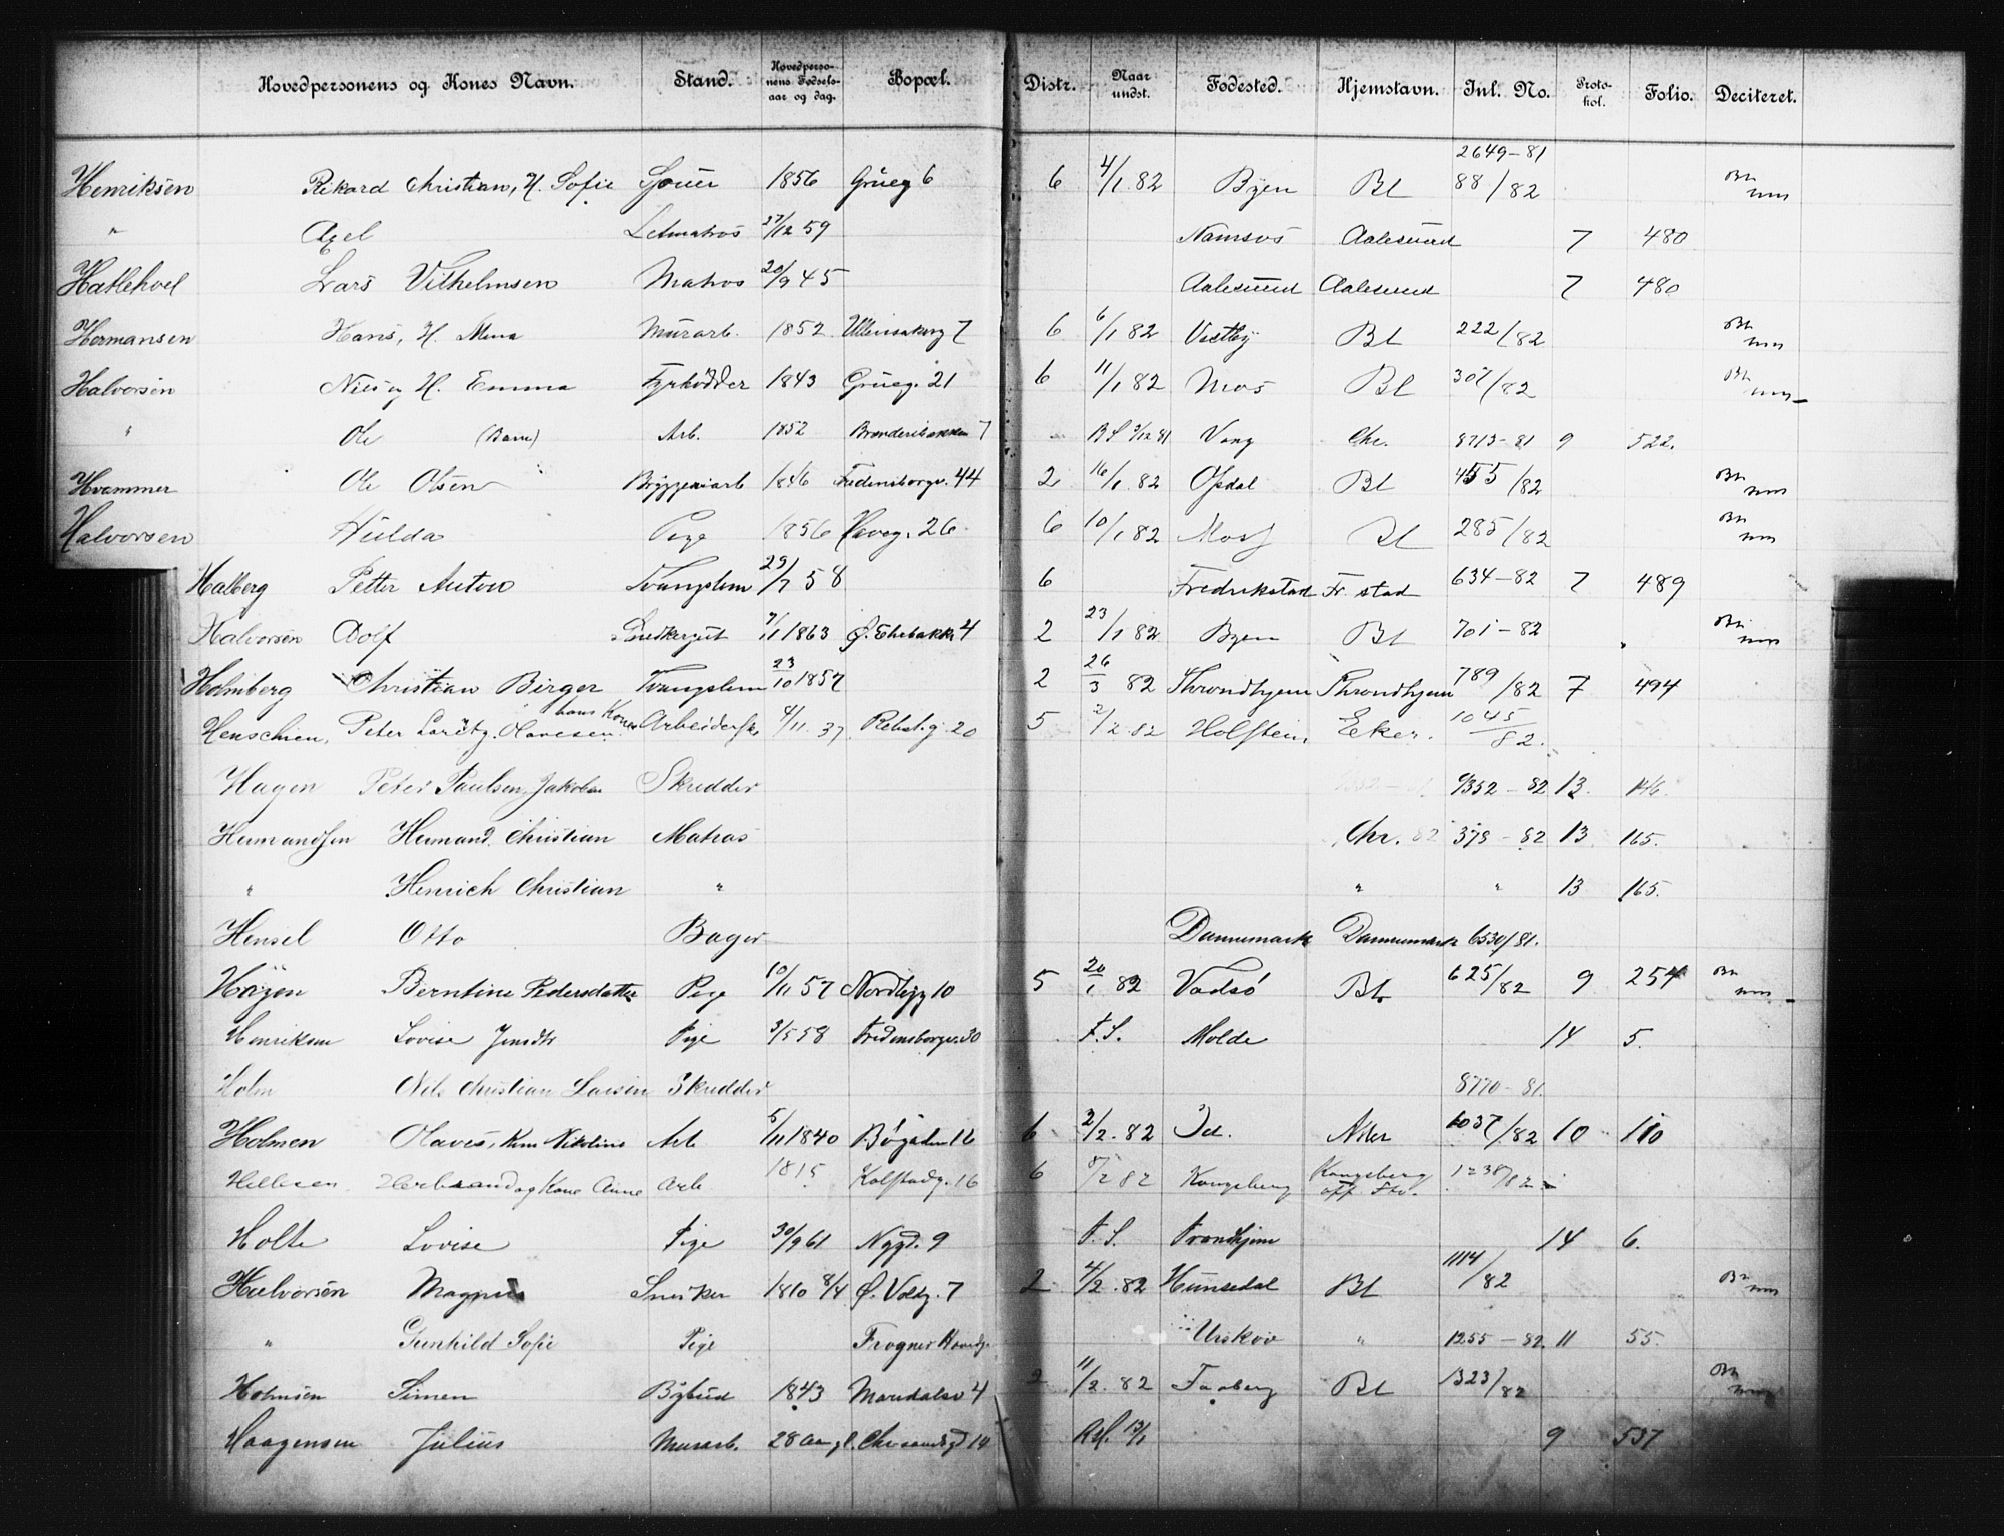 Hovedpersonens og Kones Navn. Stand. Hovedpersonens Fødsels-aar og dag. Bopæl. Distr. Naar undst. Fødested. Hjemstavn. Jnl. No. Protokol. Folio. Deciteret.
Henriksen Rikard Christian, H. Sofie 1856 Grueg 6 6 4/1 82 Byen Bl 2649-81 88/82
" Axel Letmatros 27/12 59 Namsos Aalesund 7 480
Hatlehol Lars Vilhelmsen Matros 20/9 45 Aalesund Aalesund 7 480
Hermansen Hans, H. Mina Murarb. 1852 Ullensakerg 7 6 6/1 82 Vestby Bl 222/82
Halvorsen Niels og H. Emma Fyrbödder 1843 Grueg. 21 6 11/1 82 Mos Bl 307/82
" Ole (Barn) Arb. 1852 7 Vang Chr. 8713-81 9 522.
Hvammer Ole Olsen Bryggeriarb 1846 Fredensborgv. 44 2 16/1 82 Opdal Bl 455/82
Halvorsen Hulda Pige 1856 26 6 10/1 82 Moss Bl 285/82
Halberg Petter Anton Tvangslem 29/7 58 6 Fredrikstad Fr. stad 634-82 7 489
Halvorsen Adolf Snedkergut 7/11 1863 4 2 23/1 82 Byen Bl 701-82
Holmberg Christian Birger Tvangslem 23/10 1857 2 26/3 82 Throndhjem Throndhjem 789/82 7 494
Henschien, Peter Loretz. Olavesen hans Kone 4/11. 37 Rebslg 20 5 2/2 82 Holstein Eker. 1045/82.
Hagen Peter Paulsen, Jakobine Skredder 9352-82 13. 146.
Hermandsen Hermand Christian Matros Chr. 82 378-82 13 165.
" Henrich Christian " " " 13 165.
Hensel Otto Bager Dannemark Dannemark 6530/81.
Höyen Berntine Pedersdatter Pige 10/11 57 Nordbyg 10 5 20/1 82 Vadsö Bl. 625/82 9 254
Henriksen Lovise Jensdtr Pige 3/5 58 Fredensborgv. 30 F. S. Molde 14 5.
Holm Nils Christian Larsen Skredder 8770-81.
Holmen Olaves, Kone Nikoline Arb 5/11 1840 16 6 2/2. 82 Id. 1037/82 10 110
Hellesen Herbrand og Kone Anne Arb 1815 Kolstadg. 16 6 8/2 82 Kongsberg Kongsberg 1238/82
Holte Lovise Pige 30/9 61 Nygd. 9 F. S. Trondhjem 14 6.
Halvorsen Magnus Snerker 1810 8/4 Ø. Voldg. 7 2 4/2. 82 Hemsedal Bl 1114/82
" Gunhild Sofie Pige Frogner Urskov " 1255-82. 11 55.
Holmsen Simen Bybud 1843 Maridalsv 4 2 11/2. 82 Faaberg Bl 1323/82
Haagensen Julius Murarb. 28 Aar gl. 9 537